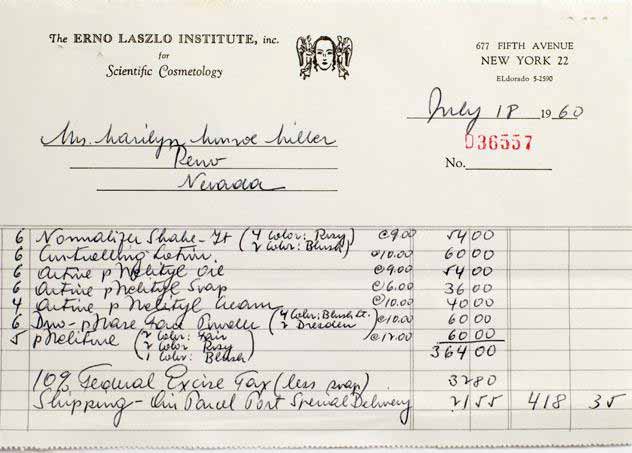 The ERNO LASZLO INSTITUTE, inc.
for
Scientific Cosmetology
677 FIFTH AVENUE
NEW YORK 22
ELdorado 5-2590
July 18 1960
Mrs. Marilyn Monroe Miller
Reno
Nevada
No. 036557
6 Normalizer Shake-It (4 Color: Rosy) @9.00 54 00
2 Color: Blush
6 Controlling Lotion @10.00 60 00
6 Active pHelityl Oil @9.00 54 00
6 Active pHelityl Soap @6.00 36 00
4 Active pHelityl Cream @10.00 40 00
6 Duo-pHase Face Powder (4 Color: Blush Lt. @10.00 60 00
2 Dresden)
5 pHelitone (2 Color: Fair @12.00 60 00
2 Color: Rosy
1 Color: Blush)
364 00
10% Federal Excise Tax (less soap) 32 80
Shipping - Air Parcel Post Special Delivery 21 55 418 35